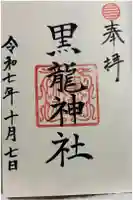 奉拝
黒龍神社
令和七年十月七日